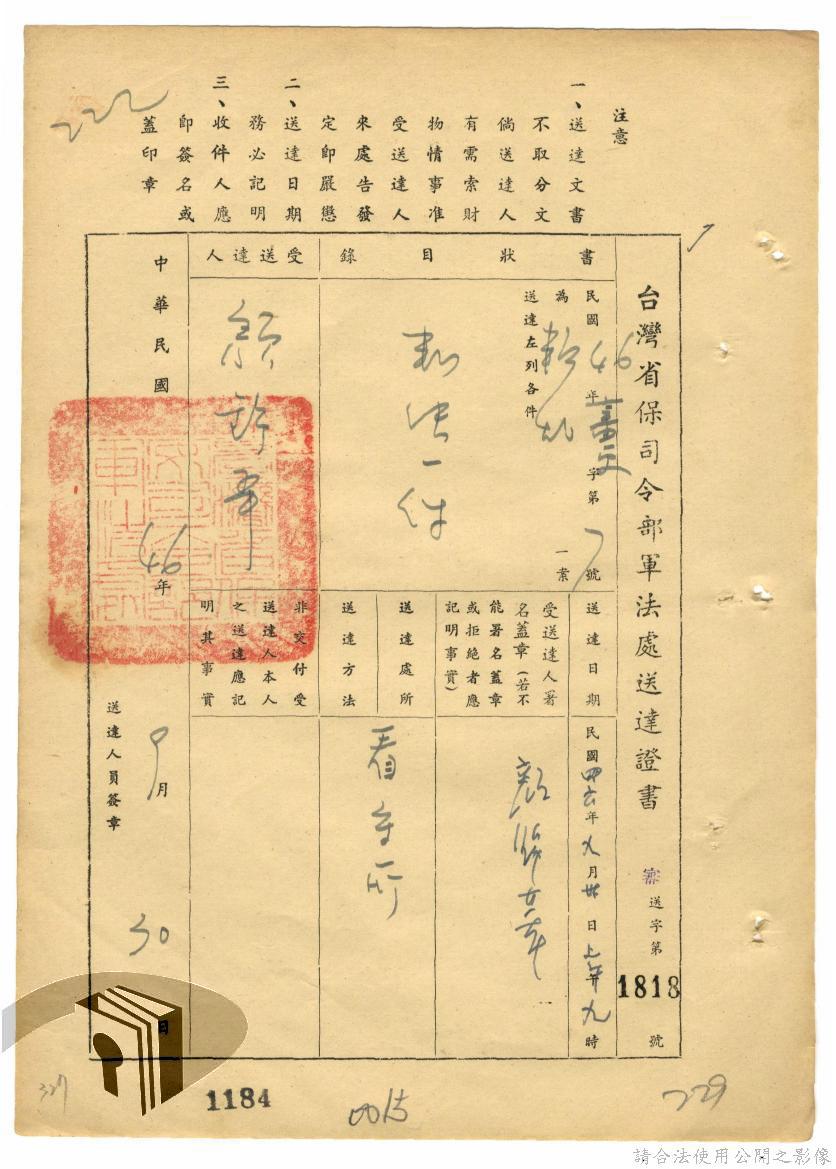 注意
一、送達文書
不取分文
倘送達人
有需索財
物情事准
受送達人
來處告發
定即嚴懲
二、送達日期
務必記明
三、收件人應
即簽名或
蓋印章
222
台灣省保司令部軍法處送達證書
審送字第1818號
書狀目錄
民國46年審文字第7號
為叛亂一案
送達左列各件
判決一件
受送達人
送達日期
民國四六年九月卅日上午九時
受送達人署
名蓋章(若不
能署名蓋章
或拒絕者應
記明事實)
送達處所
看守所
送達方法
非交付受
送達人本人
之送達應記
明其事實
中華民國46年9月30日
送達人員簽章
327
1184
229
請合法使用公開之影像